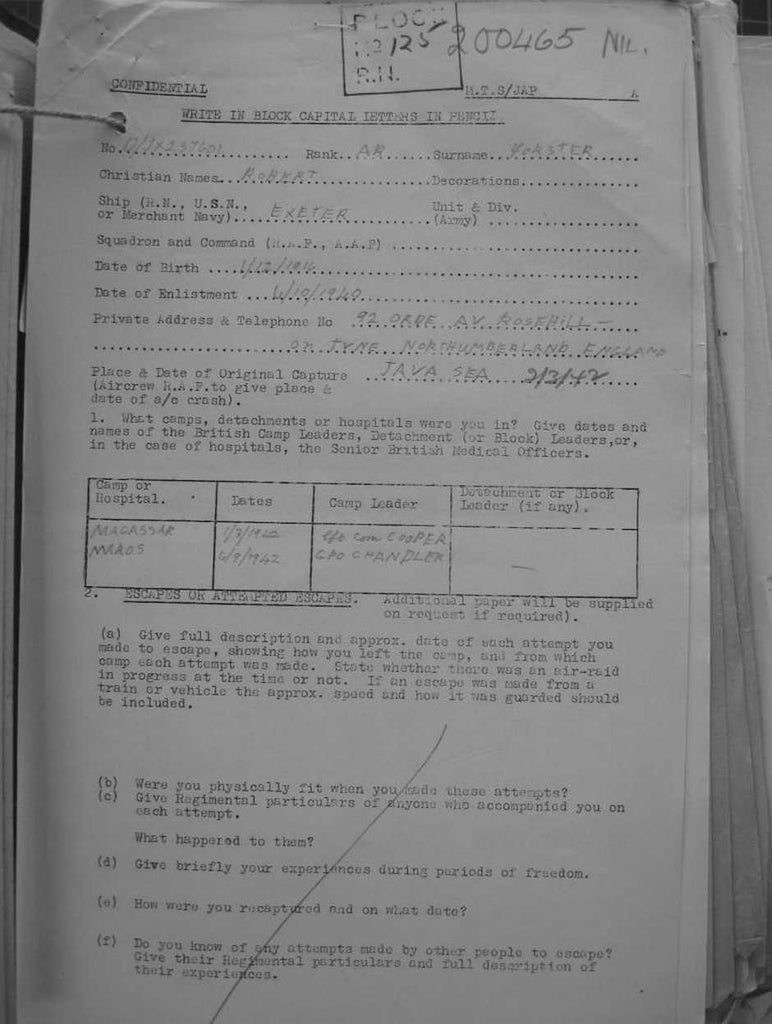 BLOCK
No 125 200465 NIL.
R.N.
CONFIDENTIAL M.T.S/JAP A
WRITE IN BLOCK CAPITAL LETTERS IN PENCIL.
No. D/JX237601 Rank.. AR ......Surname.. YORSTER
Christian Names... ROBERT ...........Decorations..............
Ship (R.N., U.S.N., Unit & Div.
or Merchant Navy)..... EXETER ........ (Army) ..................
Squadron and Command (R.A.F., A.A.F) ..............................
Date of Birth .... 1/12/1914 ......
Date of Enlistment ... 6/10/1940 ......
Private Address & Telephone No 92 ORDE AV ROSEHILL -
on TYNE NORTHUMBERLAND ENGLAND
Place & Date of Original Capture ...JAVA SEA.... 2/3/42
(Aircrew R.A.F. to give place &
date of a/c crash).
1. What camps, detachments or hospitals were you in? Give dates and
names of the British Camp Leaders, Detachment (or Block) Leaders, or,
in the case of hospitals, the Senior British Medical Officers.
Camp or Hospital. Dates Camp Leader Detachment or Block Leader (if any).
MACASSAR 1/3/1942 Lt Com COOPER
MAROS 6/9/1942 CPO CHANDLER —
2. ESCAPES OR ATTEMPTED ESCAPES. Additional paper will be supplied
on request if required).
(a) Give full description and approx. date of each attempt you
made to escape, showing how you left the camp, and from which
camp each attempt was made. State whether there was an air-raid
in progress at the time or not. If an escape was made from a
train or vehicle the approx. speed and how it was guarded should
be included.
(b) Were you physically fit when you made these attempts?
(c) Give Regimental particulars of anyone who accompanied you on
each attempt.
What happened to them?
(d) Give briefly your experiences during periods of freedom.
(e) How were you recaptured and on what date?
(f) Do you know of any attempts made by other people to escape?
Give their Regimental particulars and full description of
their experiences.